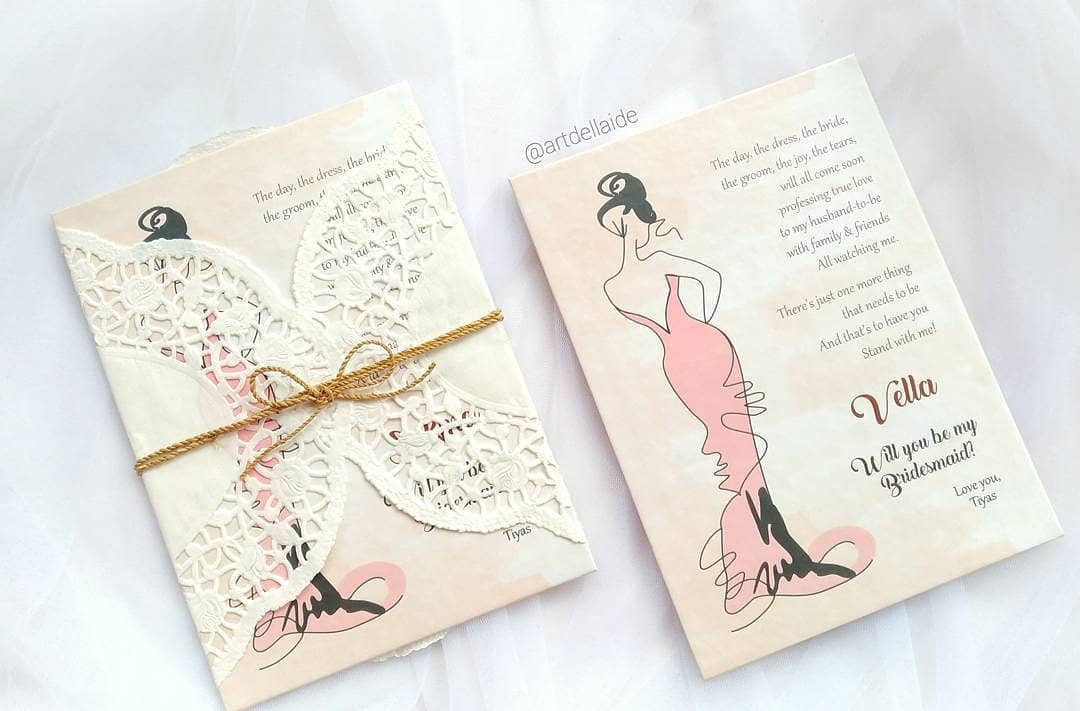 The day, the dress, the brid
the groom,
Tiyas
@artdellaide
The day, the dress, the bride,
the groom, the joy, the tears,
will all come soon
professing true love
to my husband-to-be
with family & friends
All watching me.
There's just one more thing
that needs to be
And that's to have you
Stand with me!
Vella
Will you be my
Bridesmaid?
Love you,
Tiyas